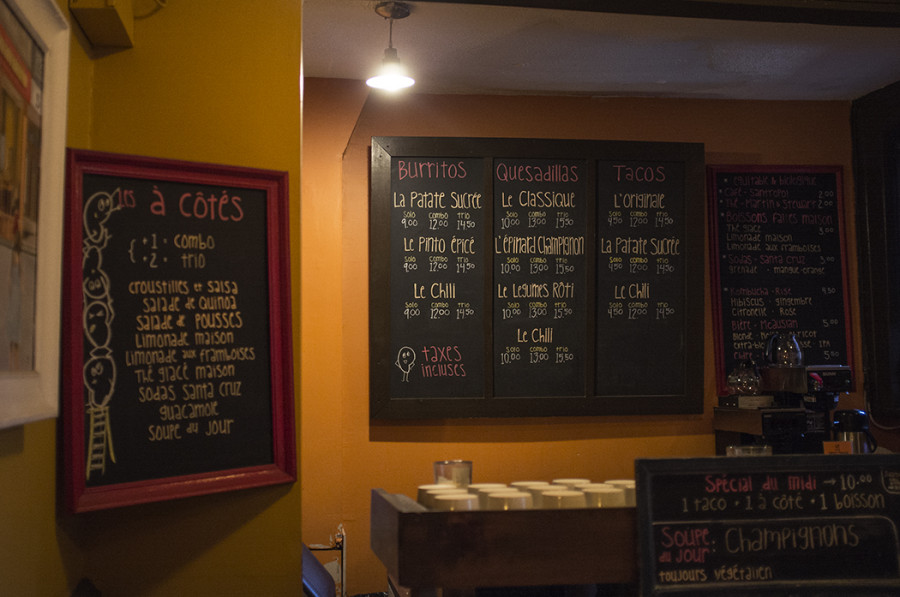 1rs à côtés
+1 = combo
+2 = trio
croustilles et salsa
salade de quinoa
salade de pousses
Limonade maison
Limonade aux framboises
Thé glacé maison
Sodas Santa Cruz
guacamole
soupe du jour
Burritos
La Patate Sucrée
solo combo trio
9.00 12.00 14.50
Le Pinto épicé
solo combo trio
9.00 12.00 14.50
Le Chili
solo combo trio
9.00 12.00 14.50
taxes
incluses
Quesadillas
Le Classique
solo combo trio
10.00 13.00 15.50
L'épinard Champignon
solo combo trio
10.00 13.00 15.50
Le Legumes Rôti
solo combo trio
10.00 13.00 15.50
Le Chili
solo combo trio
10.00 13.00 15.50
Tacos
L'originale
solo combo trio
4.50 12.00 14.50
La Patate Sucrée
solo combo trio
4.50 12.00 14.50
Le Chili
solo combo trio
4.50 12.00 14.50
* équitable & biologique
* Café - Santropol 2.00
* Thé - Martin & Stewart 2.00
* Boissons faites maison
Thé glacé 3.00
Limonade maison
Limonade aux framboises
* Sodas - Santa Cruz 3.00
grenade - mangue
* Kombucha - Rise 4.50
Hibiscus - gingembre
Citronelle - Rose
Bière - 5.00
Spécial du midi → 10.00
1 taco • 1 à côté • 1 boisson
Soupe du jour: Champignons
toujours végétalien